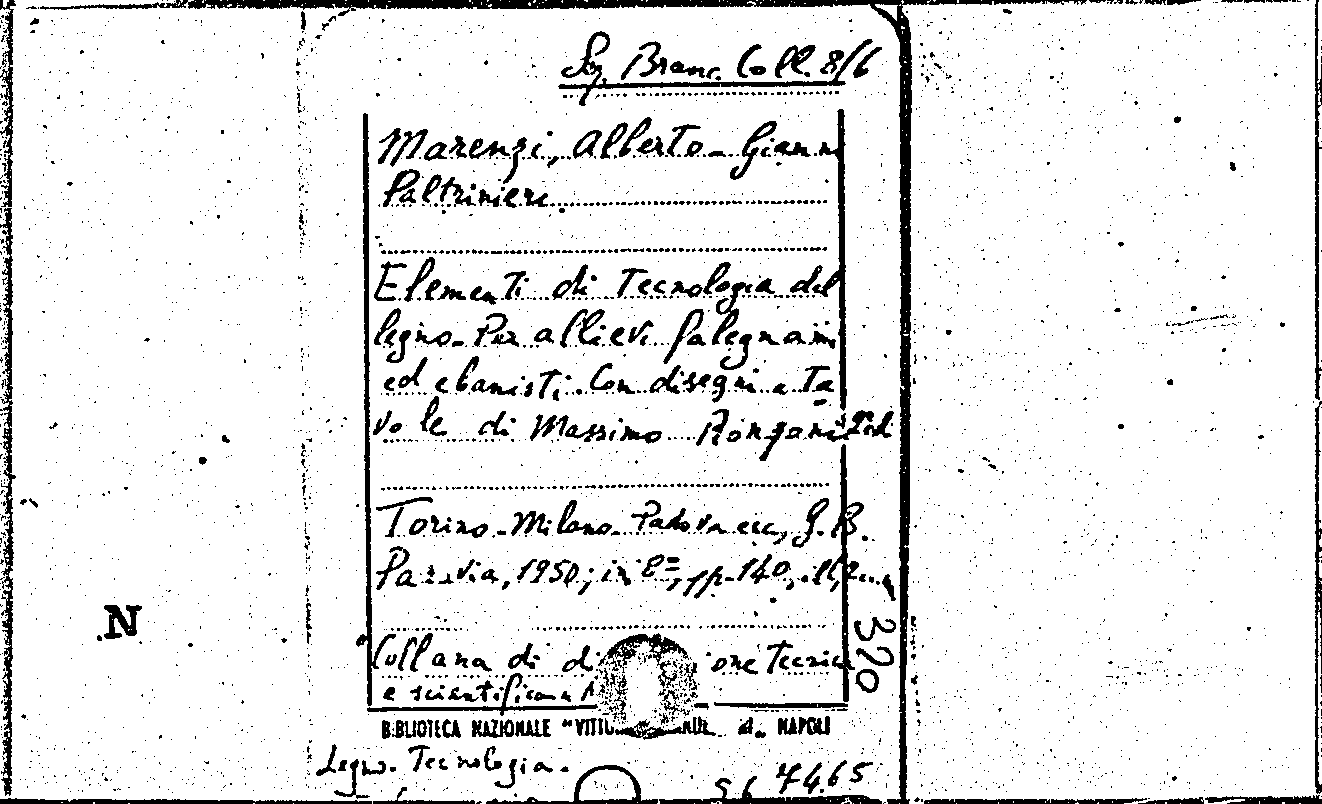 Sez. Branc. Coll. 8/6
Marenzi, Alberto - Gianni
Paltrinieri.
Elementi di Tecnologia del
legno. Per allievi falegnami
ed ebanisti. Con disegni e ta
vole di Massimo
Torino - Milano - Padova ecc, G. B.
Paravia, 1950; in 8º, pp. 140, ill,
370
"Collana di di one Tecnica
e scientifica
BIBLIOTECA NAZIONALE NAPOLI
Legno. Tecnologia.
7465
N